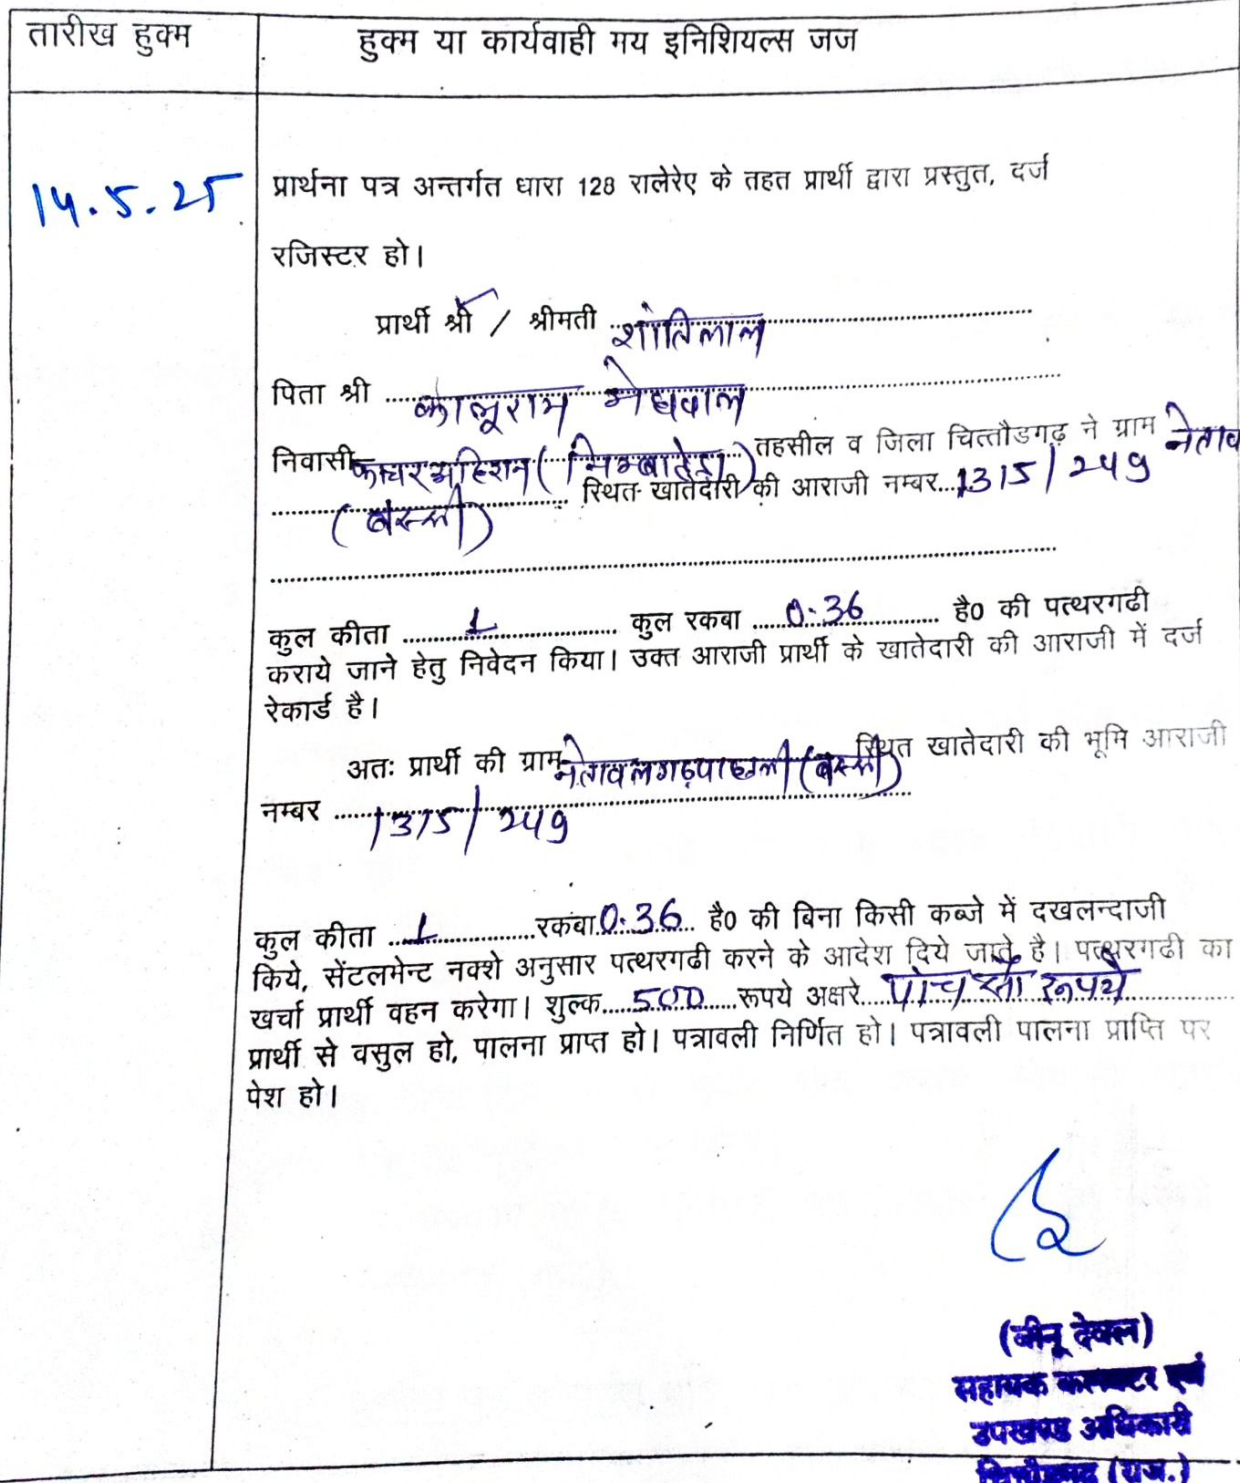 तारीख हुक्म
हुक्म या कार्यवाही मय इनिशियल्स जज
14.5.25
प्रार्थना पत्र अन्तर्गत धारा 128 रालेरेए के तहत प्रार्थी द्वारा प्रस्तुत, दर्ज
रजिस्टर हो।
प्रार्थी श्री / श्रीमती शांतिलाल
पिता श्री कालूराम मेघवाल
निवासी (निम्बाहेड़ा) तहसील व जिला चित्तौडगढ़ ने ग्राम नेताव
(बस्सी) स्थित खातेदारी की आराजी नम्बर 1315/249
कुल कीता 1 कुल रकबा 0.36 है0 की पत्थरगढी
कराये जाने हेतु निवेदन किया। उक्त आराजी प्रार्थी के खातेदारी की आराजी में दर्ज
रेकार्ड है।
अतः प्रार्थी की ग्राम नेतावलगढ़पाछली (बस्सी) स्थित खातेदारी की भूमि आराजी
नम्बर 1315/249
कुल कीता 1 रकंबा 0.36 है0 की बिना किसी कब्जे में दखलन्दाजी
किये, सेंटलमेन्ट नक्शे अनुसार पत्थरगढी करने के आदेश दिये जाते है। पत्थरगढी का
खर्चा प्रार्थी वहन करेगा। शुल्क 500 रूपये अक्षरे पांच सौ रूपये
प्रार्थी से वसुल हो, पालना प्राप्त हो। पत्रावली निर्णित हो। पत्रावली पालना प्राप्ति पर
पेश हो।
(बीनू देवल)
सहायक कलक्टर एवं
उपखण्ड अधिकारी
चित्तौड़गढ़ (राज.)